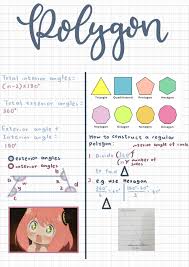 Polygon
Total interior angles:
(n-2)×180°
Total exterior angles:
360°
Exterior angle +
Interior angle:
180°
exterior angles
interior angles
Triangle
Quadrilateral
Pentagon
Hexagon
Heptagon
Octagon
Nonagon
Decagon
How to construct a regular
polygon:
interior angle of
1. Divide
number of
sides
to find
2. eg use Hexagon